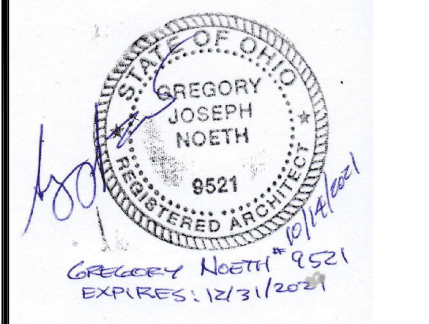 STATE OF OHIO
GREGORY
JOSEPH
NOETH
9521
REGISTERED ARCHITECT
10/14/2021
GREGORY NOETH # 9521
EXPIRES: 12/31/2021